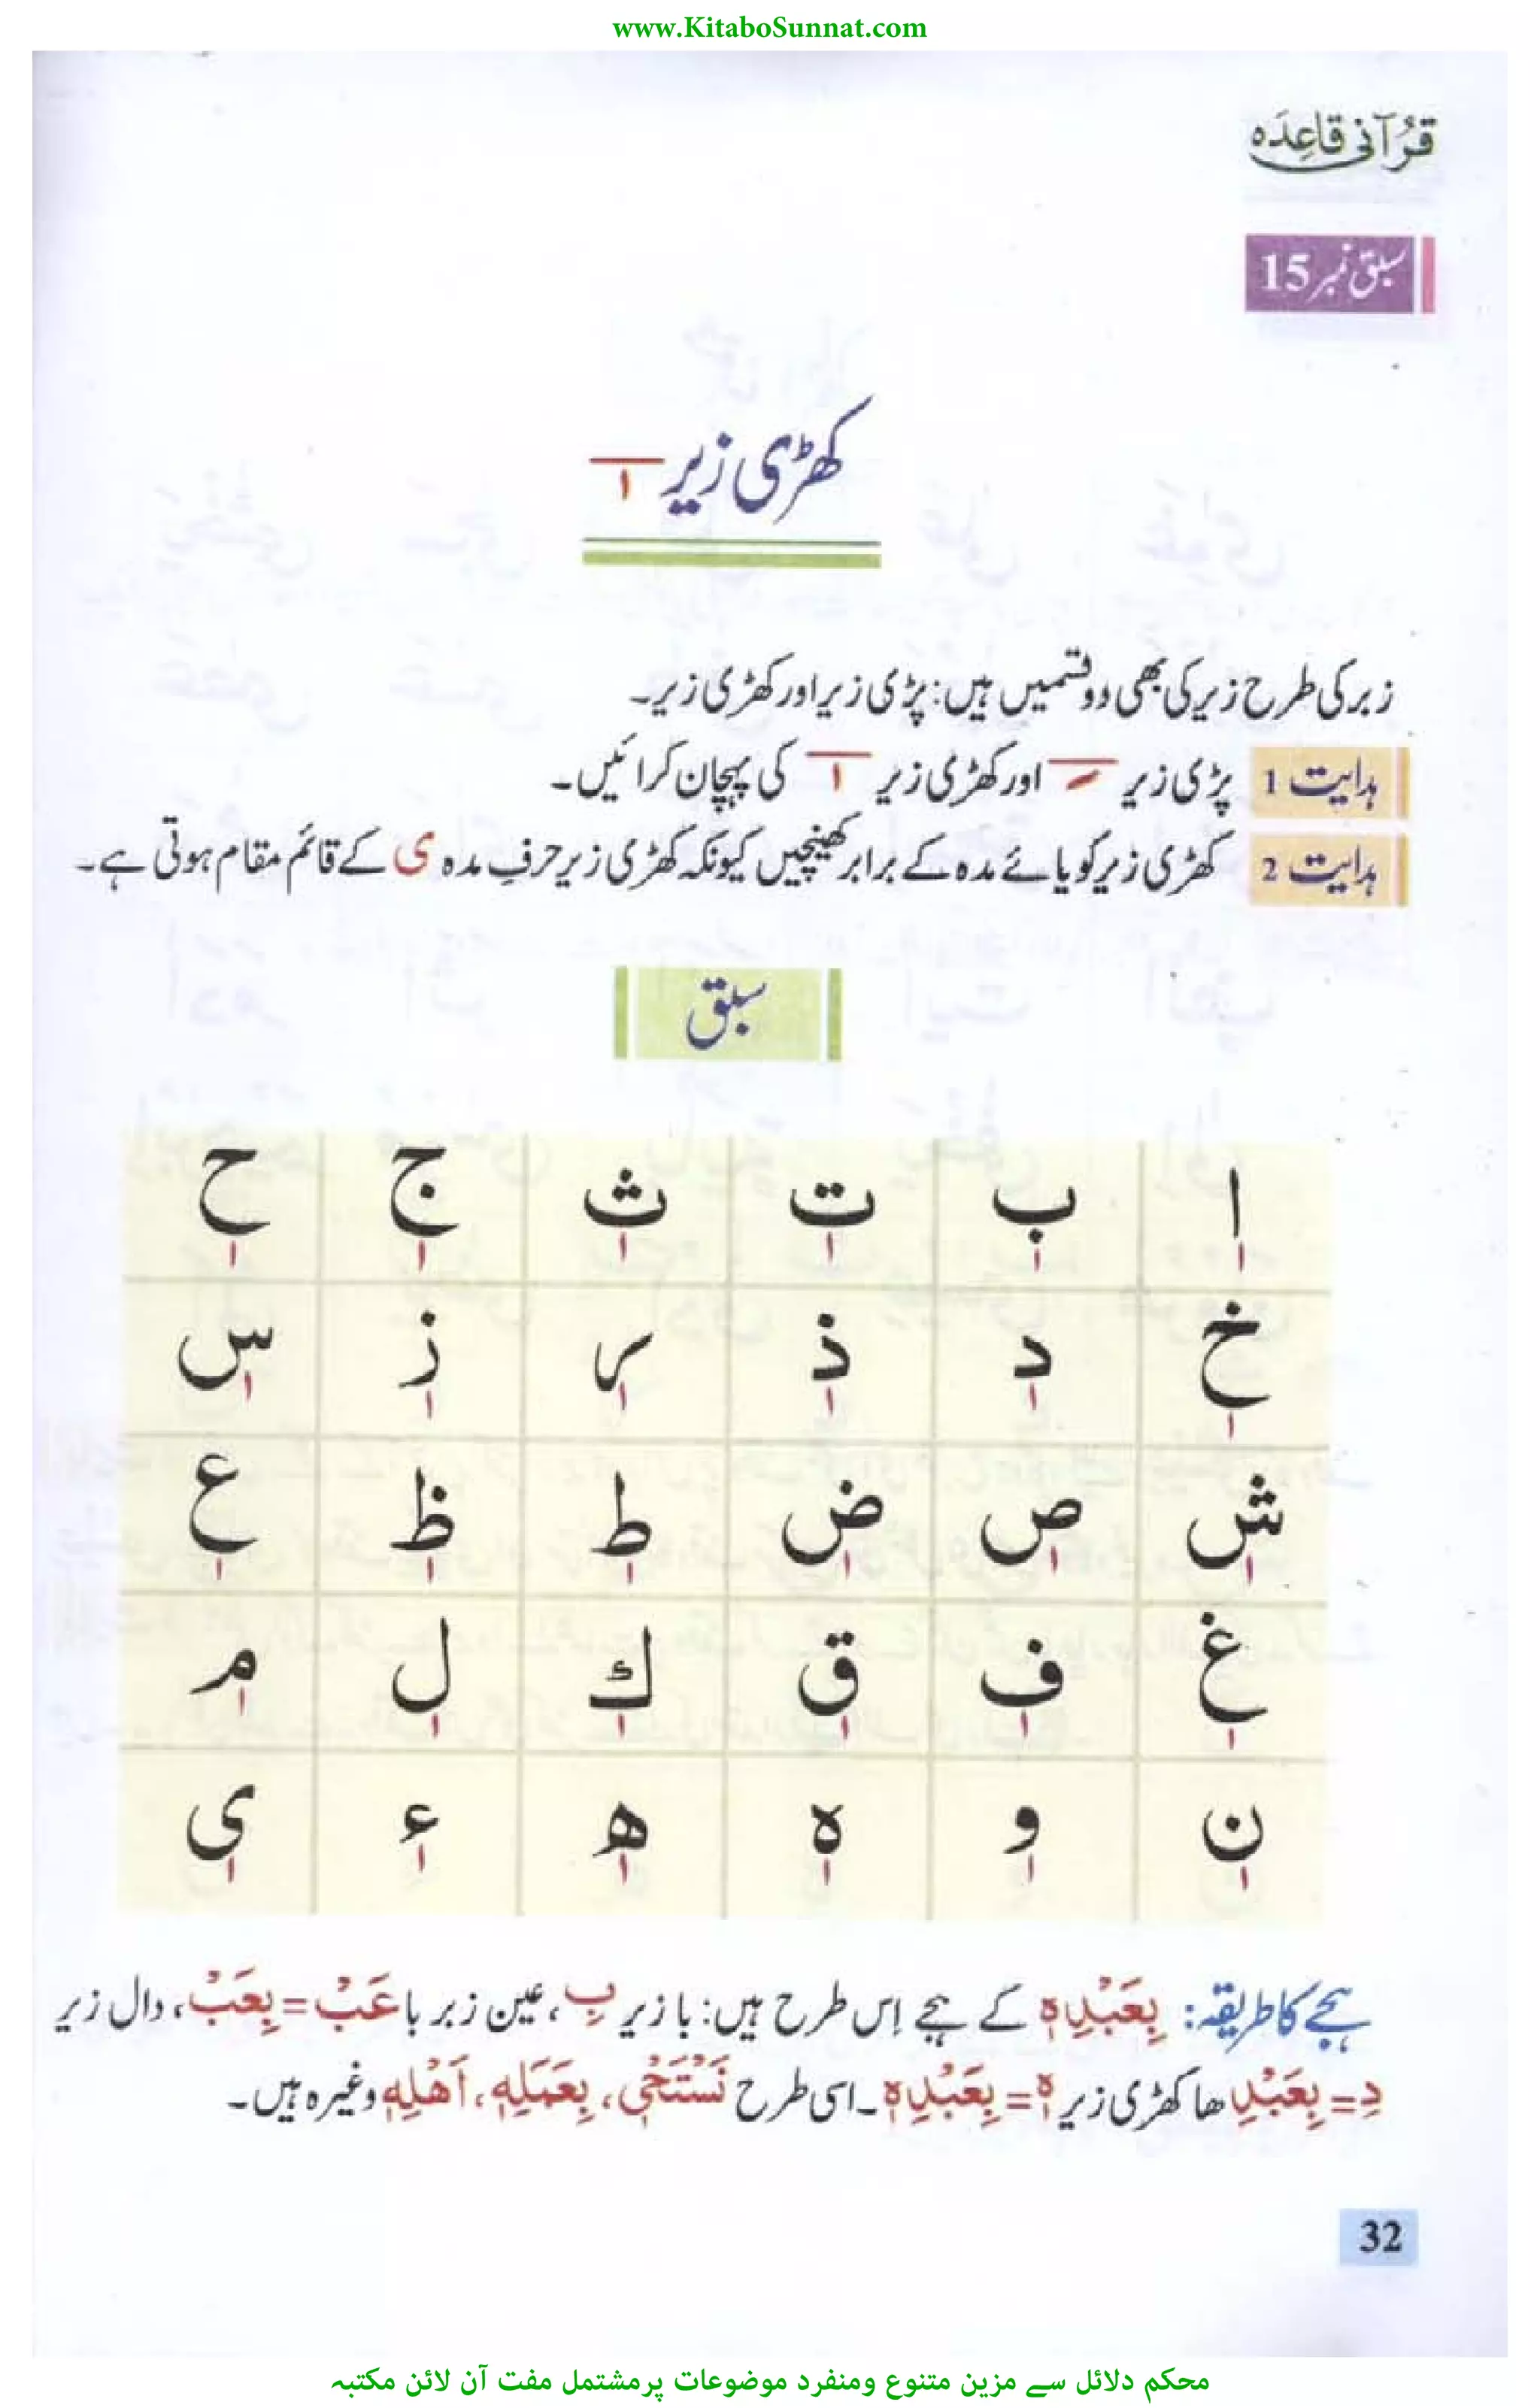 www.KitaboSunnat.com
قُرآنی قاعِدَہ
سبق نمبر 15
کھڑی زیر ـٖ
زبر کی طرح زیر کی بھی دو قسمیں ہیں: پڑی زیر اور کھڑی زیر۔
ہدایت 1 پڑی زیر ـِ اور کھڑی زیر ـٖ کی پہچان کرائیں۔
ہدایت 2 کھڑی زیر کو یائے مدہ کے برابر کھینچیں کیونکہ کھڑی زیر حرفِ مدہ ی کے قائم مقام ہوتی ہے۔
سبق
اٖ بٖ تٖ ثٖ جٖ حٖ
خٖ دٖ ذٖ رٖ زٖ سٖ
شٖ صٖ ضٖ طٖ ظٖ عٖ
غٖ فٖ قٖ كٖ لٖ مٖ
نٖ وٖ ہٖ ھٖ ءٖ یٖ
ہجے کا طریقہ: بِعَبْدِہٖ کے ہجے اِس طرح ہیں: با زیر بِ، عین زبر با عَبْ = بِعَبْ، دال زیر
دِ = بِعَبْدِ ھا کھڑی زیر ہٖ = بِعَبْدِہٖ۔ اسی طرح نَسْتَحْیٖ، بِعَمَلِهٖ، اَهْلِهٖ وغیرہ ہیں۔
32
محکم دلائل سے مزین متنوع ومنفرد موضوعات پرمشتمل مفت آن لائن مکتبہ